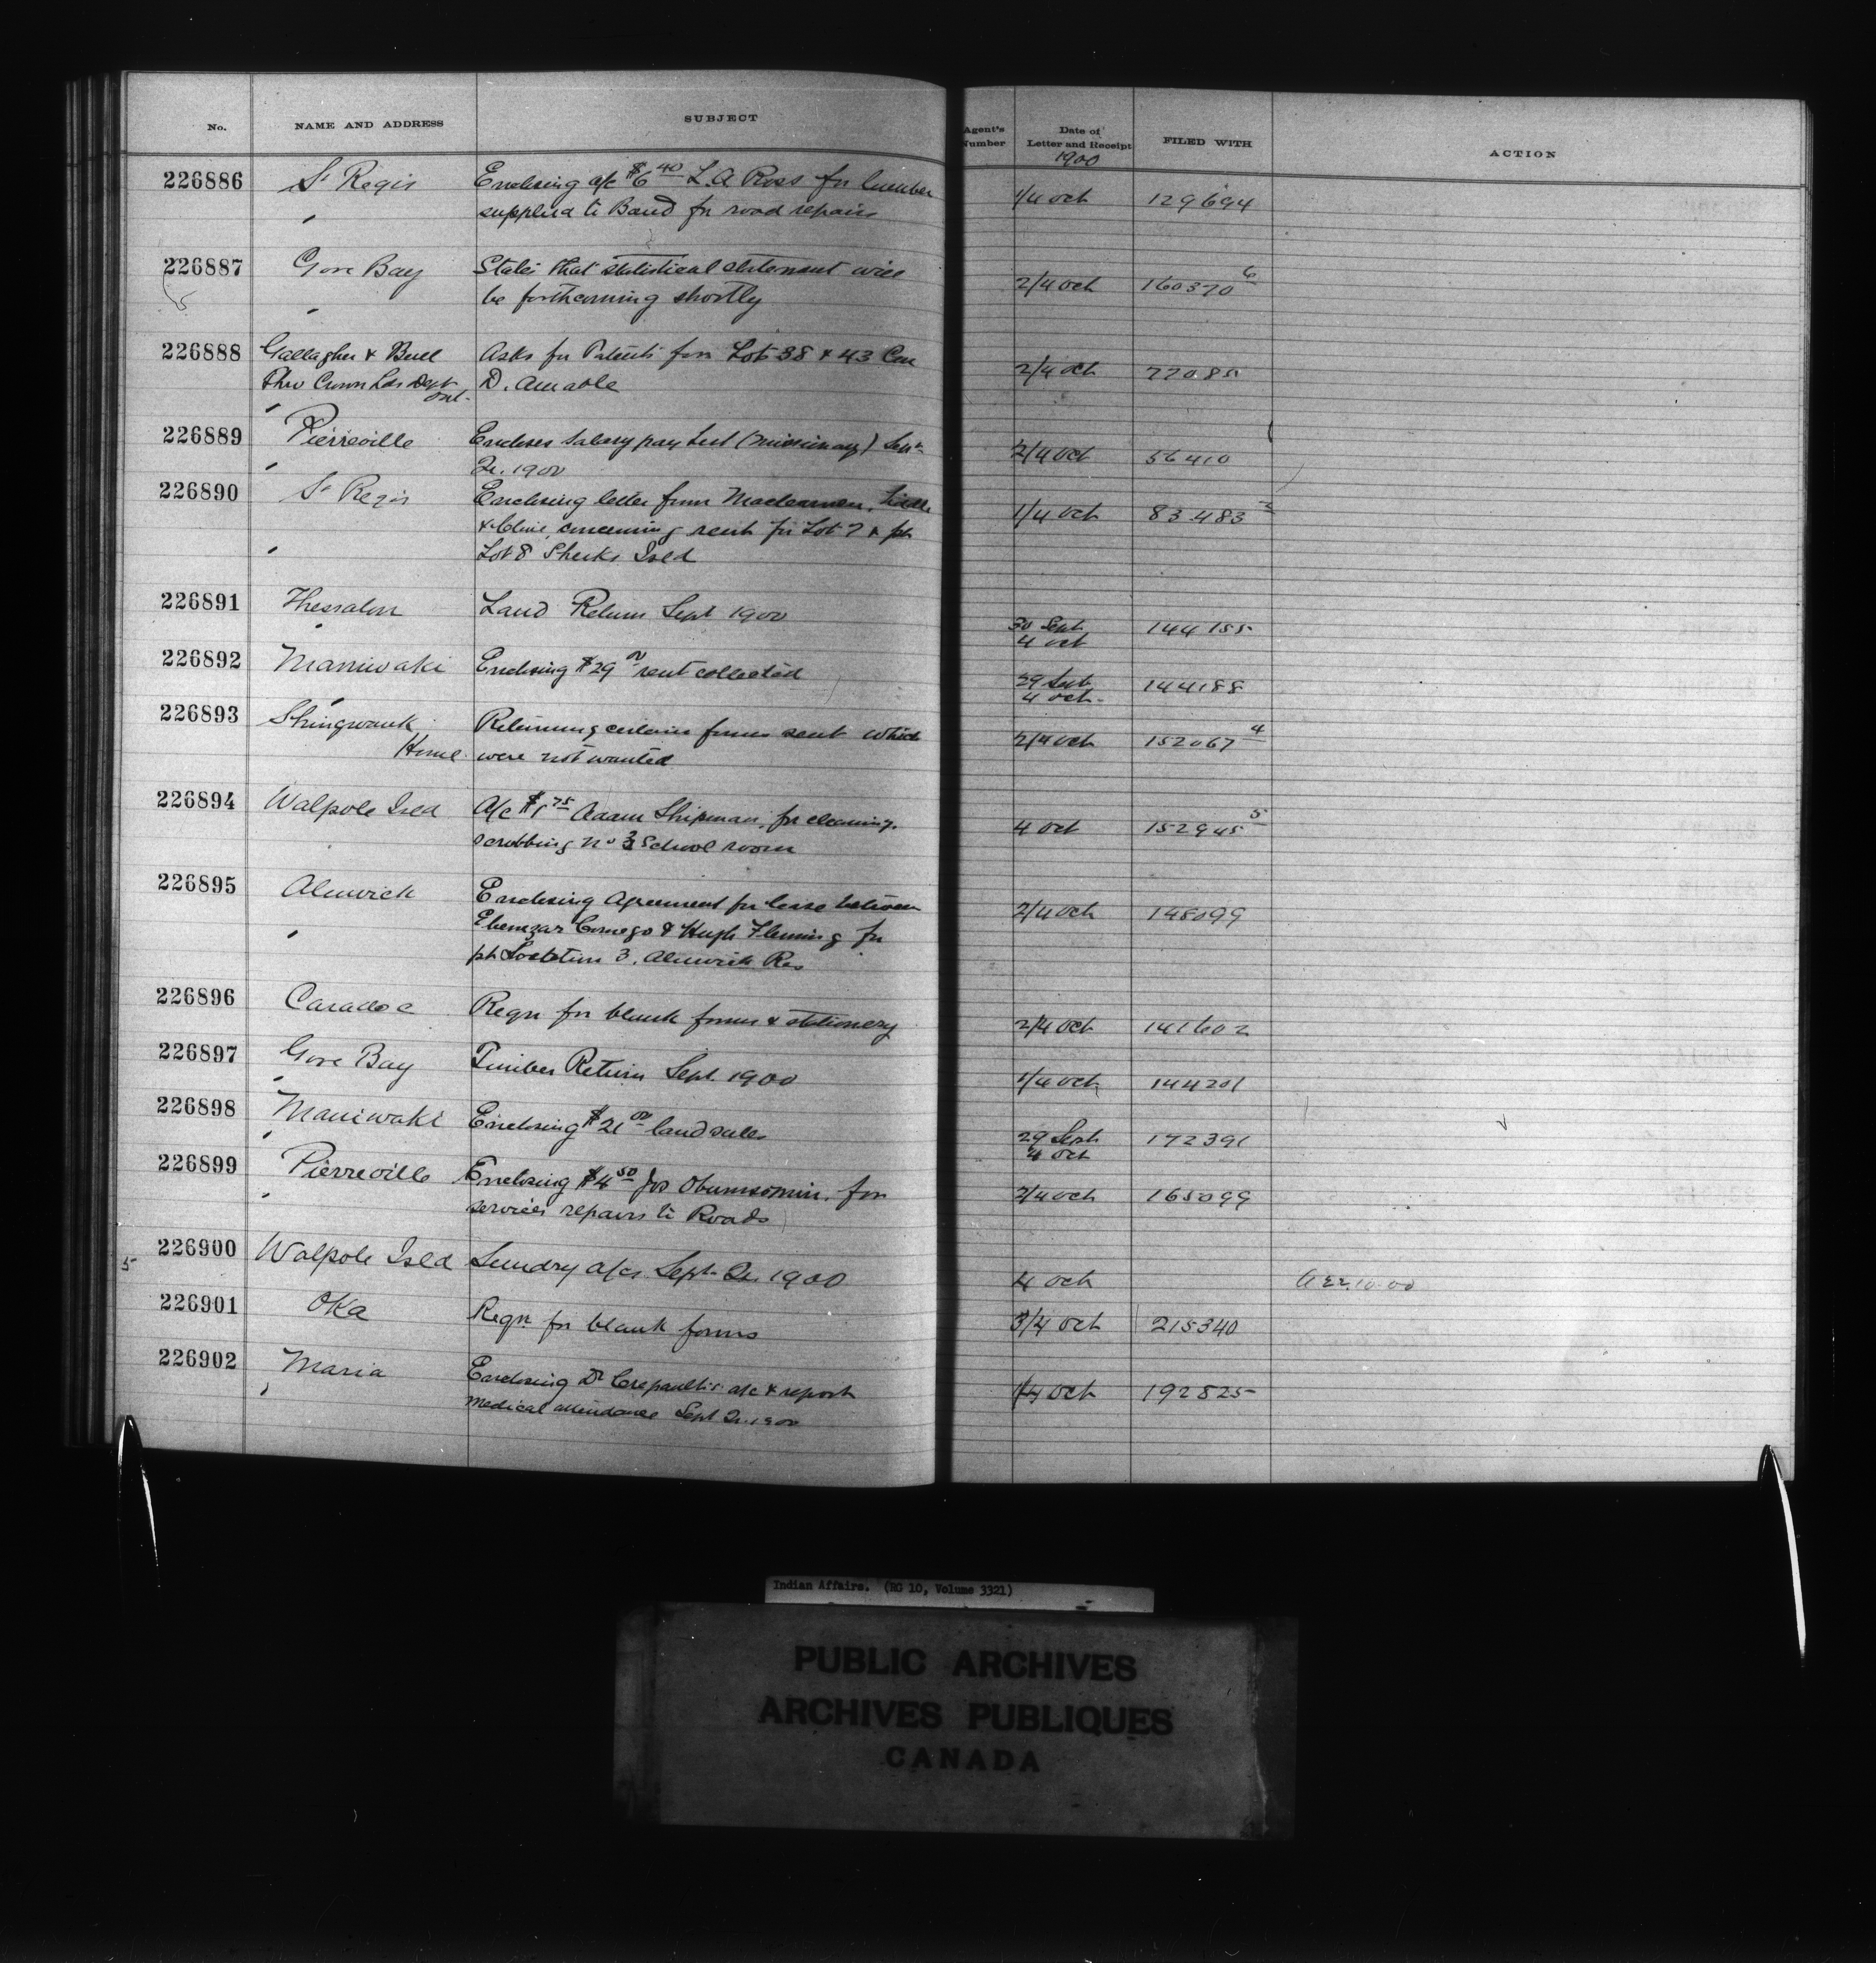 No. NAME AND ADDRESS SUBJECT Agent's Number Date of Letter and Receipt FILED WITH ACTION
1900
226886 St Regis Enclosing a/c $6 40 L. A Ross for lumber 1/4 Oct 129694
" supplied to Band for road repairs
226887 Gore Bay States that statistical statement will 2/4 Oct 160370 6
" be forthcoming shortly
226888 Gallagher & Bull Asks for Patents for Lots 38 & 43 Con 2/4 Oct
Thro Crown Lds Dept Ont. D. Amable
226889 Pierreville Encloses Salary pay list (missionary) Sept 2/4 Oct 56410
" Qr. 1900
226890 St Regis Enclosing letter from 1/4 Oct 83483 3
& Cline, concerning rent for Lot 7 & pt
" Lot 8 Sheeks Isld
226891 Thessalon Land Return Sept 1900 30 Sept 144155
" 4 Oct
226892 Maniwaki Enclosing $29 00 rent collected 29 Sept 144188
" 4 Oct.
226893 Shingwauk Returning certain forms sent which 2/4 Oct 152067 4
Home were not wanted
226894 Walpole Isld A/c $1 75 Adam Shipman, for cleaning, 4 Oct 152945 5
scrubbing No 3 School room
226895 Alnwick Enclosing Agreement for lease between 2/4 Oct 148099
Ebenezar Comego & Hugh Fleming for
" pt Location 3. Alnwick Res
226896 Caradoc Reqn for blank forms & stationery 2/4 Oct 141602
226897 Gore Bay Timber Return Sept. 1900 1/4 Oct 144201
226898 Maniwaki Enclosing $21 00 land sales 29 Sept 172391
" 4 Oct
226899 Pierreville Enclosing $4 50 Jos Obumsomin, for 2/4 Oct 165099
" services repairs to Roads
5 226900 Walpole Isld Sundry a/cs Sept. Qr. 1900 4 Oct
226901 Oka Reqn for blank forms 3/4 Oct 215340
226902 Maria Enclosing Dr Crepault's a/c & report 1/4 Oct 192825
" medical attendance Sept Qr. 1900
Indian Affairs. (RG 10, Volume 3321)
PUBLIC ARCHIVES
ARCHIVES PUBLIQUES
CANADA